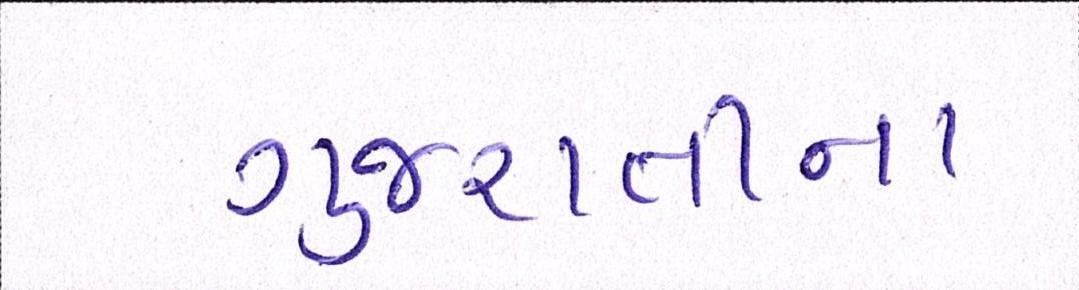 ગુજરાતીના